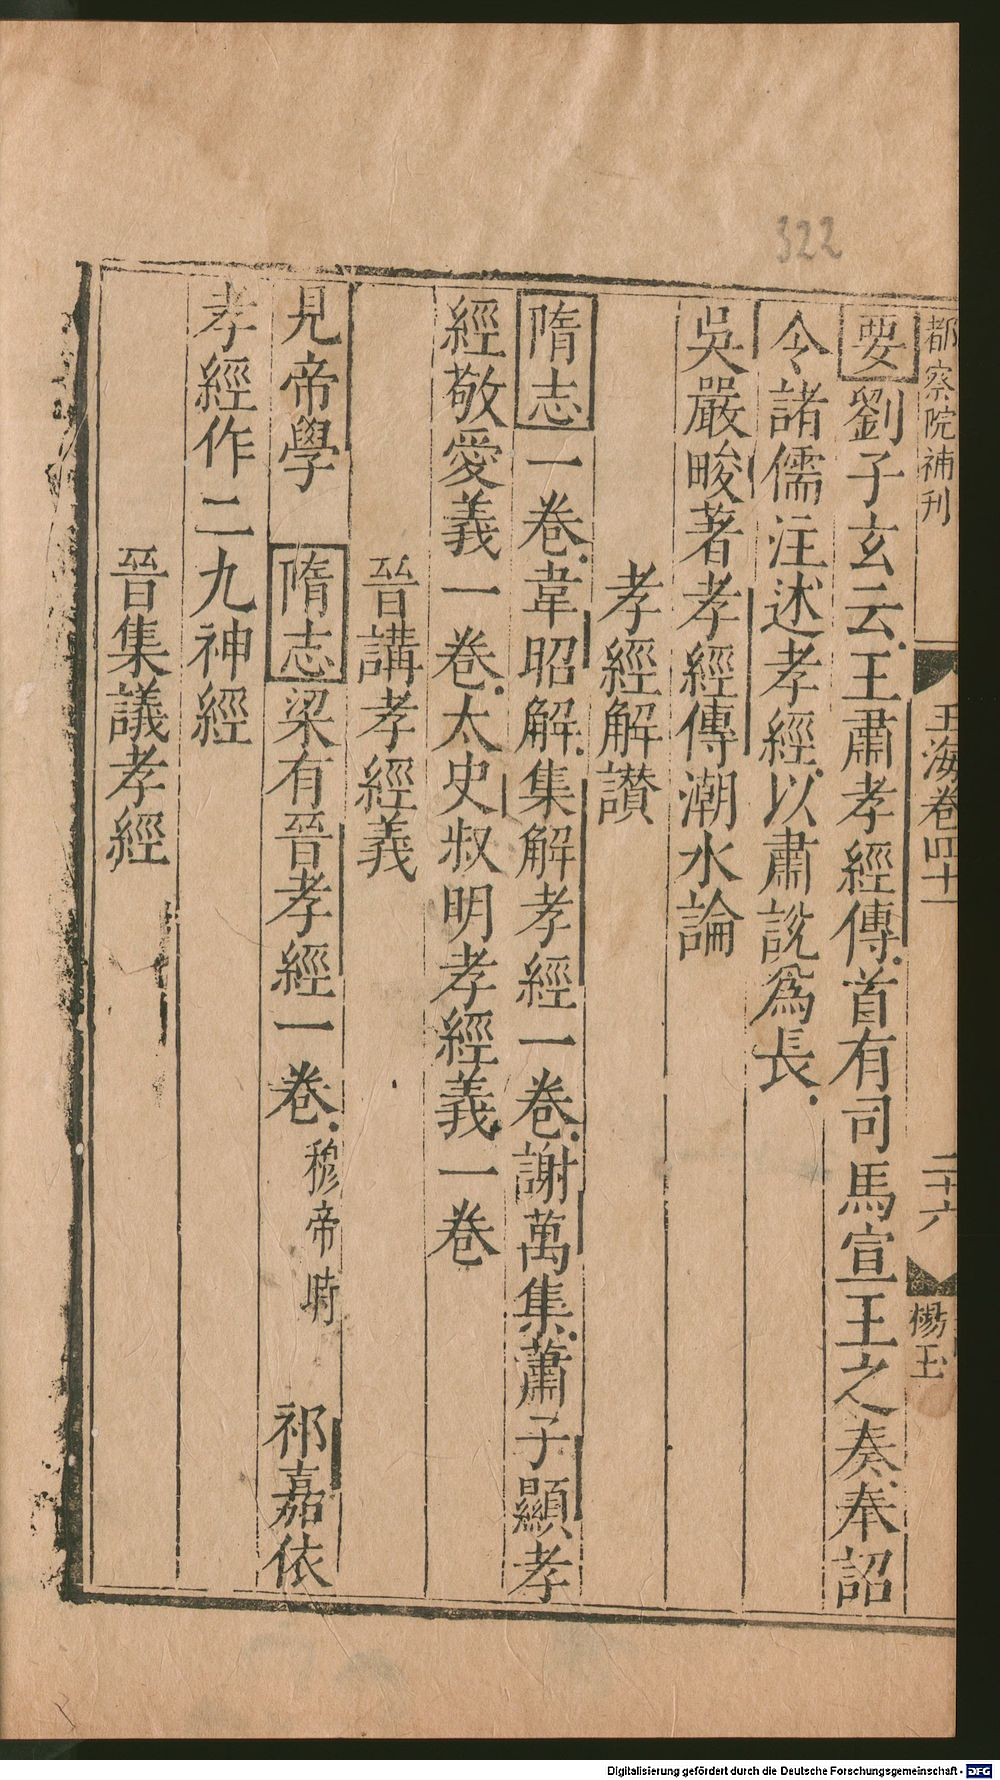 322
都察院補刊
玉海卷四十一
二十六
楊玉
要劉子玄云王肅孝經傳首有司馬宣王之奏奉詔
令諸儒注述孝經以肅說爲長
吳嚴畯著孝經傳潮水論
孝經解讃
隋志一卷韋昭解集解孝經一卷謝萬集蕭子顯孝
經敬愛義一卷太史叔明孝經義一卷
晉講孝經義
見帝學 隋志梁有晉孝經一卷穆帝時 祁嘉依
孝經作二九神經
晉集議孝經
Digitalisierung gefördert durch die Deutsche Forschungsgemeinschaft - DFG